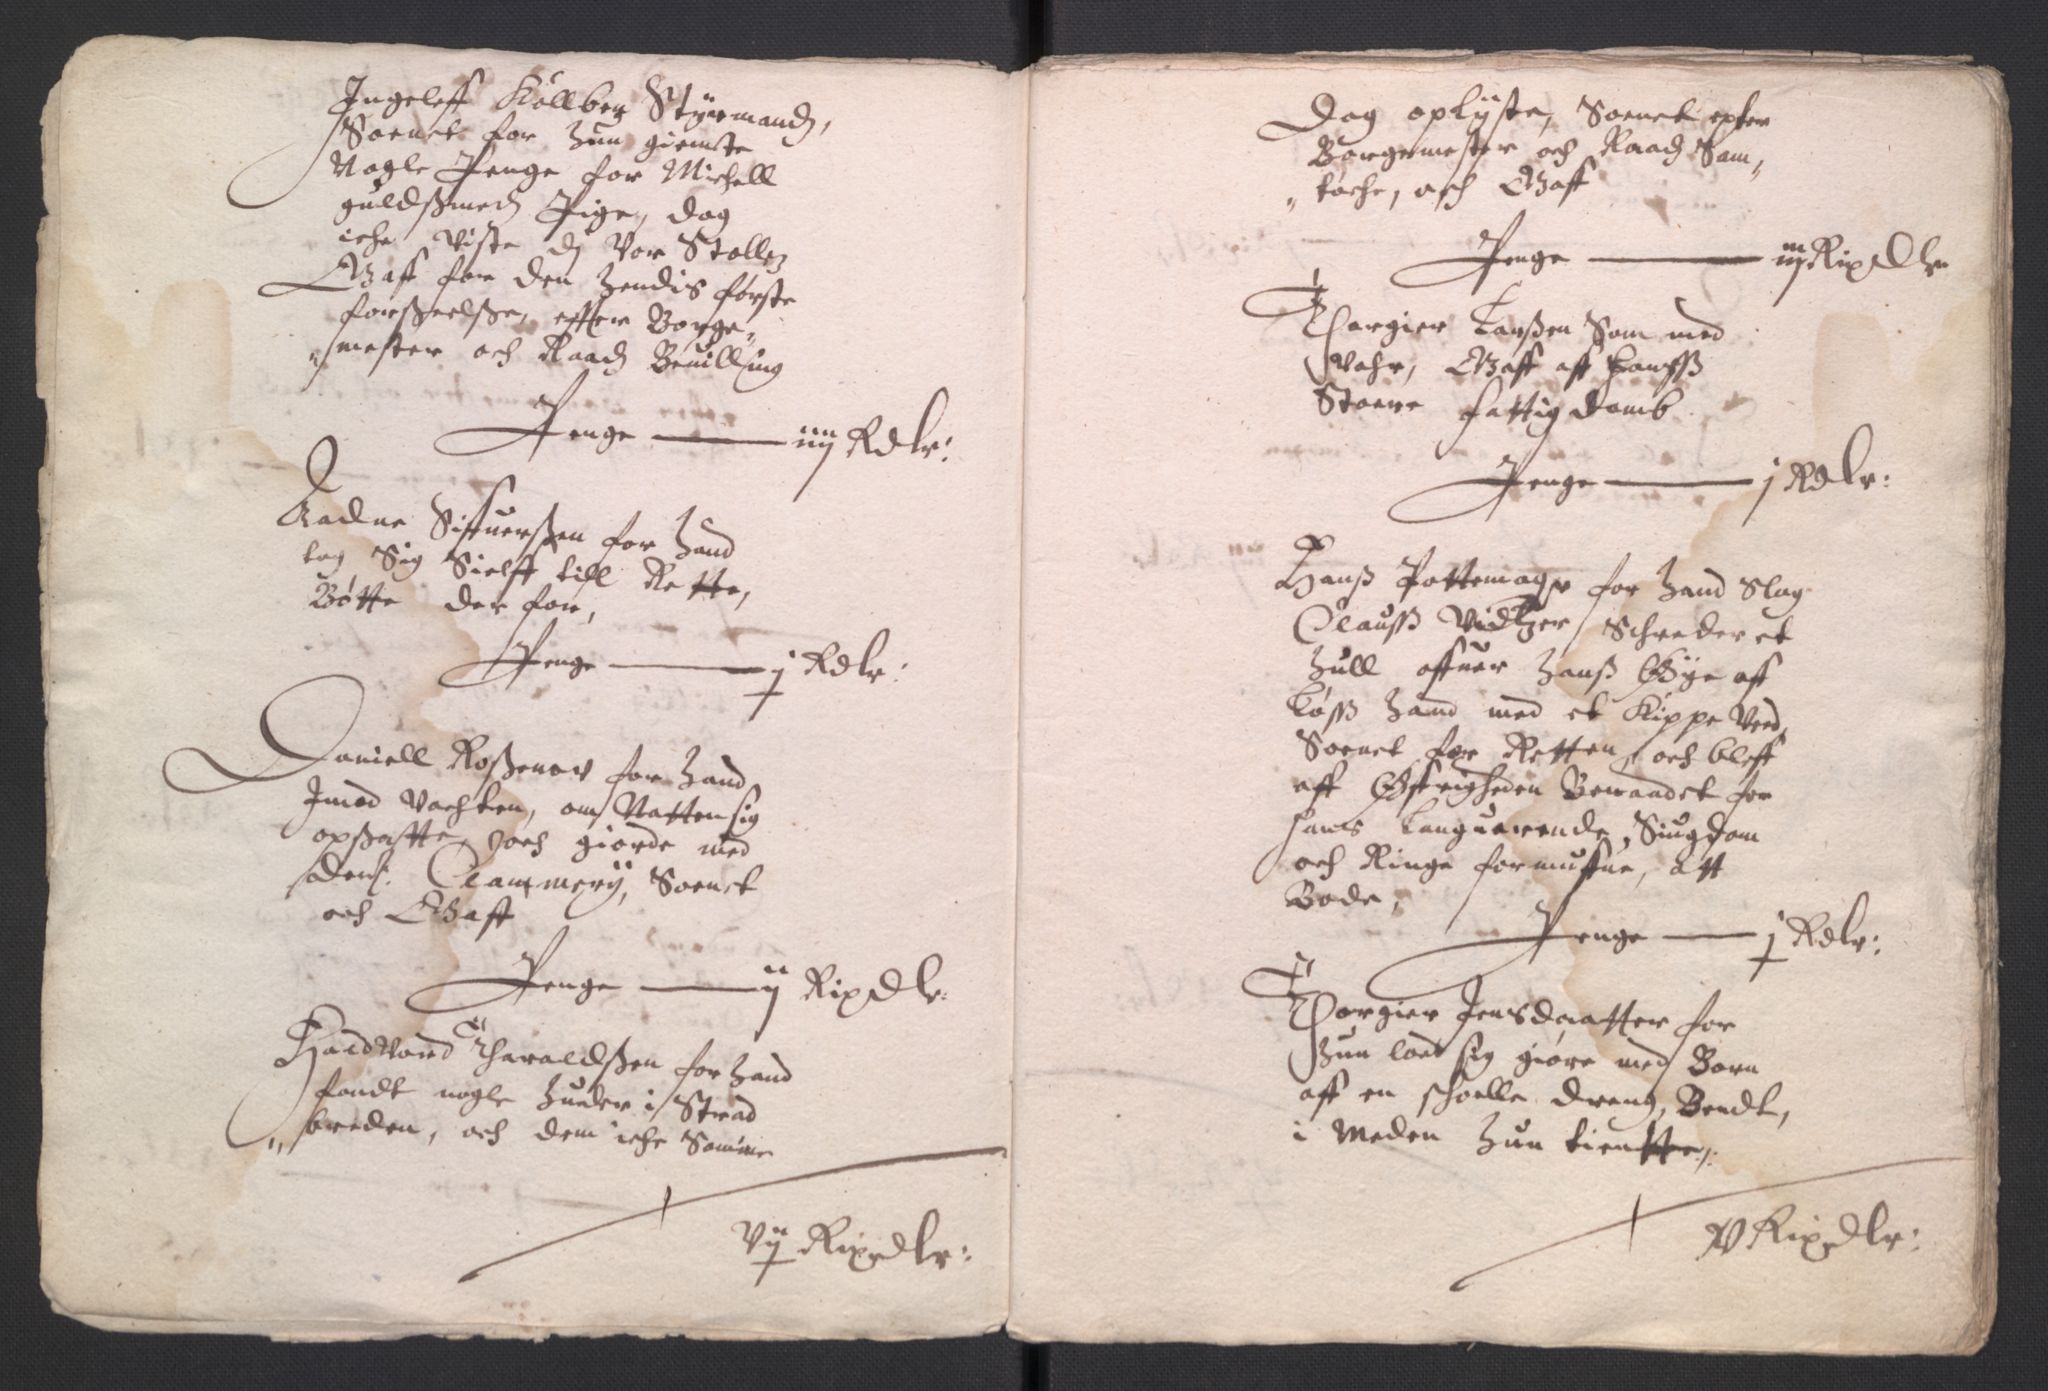 Ingeleff Köllben Styrmandz,
Sonet for hun giemte
Nogle Penge for Michell
guldsmedz Pige, dog
iche viste dj vor Stollez
Gaff for den hendis første
forseelße, effter Borge„
„mester och Raadz Beuilling
Penge — iiij Rdlr:
Aadne Siffuerßen for hand
tog Sig Sielff till Rette,
Bøtte der for,
Penge — j Rdlr:
Daniell Roßenov for hand
Imod Vachten, om Natten sig
opsatte, och giorde med
dens: Clammerij, Sonet
och Gaff
Penge — ij RixDlr:
Haldvord Tharaldßen for hand
fandt nogle huder i Strad
„breden, och dem iche Samme
Vij Rixdlr:
Dag oplyste, Sonet epter
Borgemester och Raadz Sam„
„tøche, och Gaff
Penge — iij RixDlr
Thorgier Larßen Som med
Vahr, Gaff aff hanß
Stoere fattigdomb
Penge — j Rdlr:
Hanß Pottemager for hand Slog
Clauß Vidtzer Schreder et
hull offuer hanß Øye aff
Løß hand med et Kippe Ved,
Sonet for Retten, och bleff
aff Øffrigheden Benaadet for
hans Languarende Siugdom
och Ringe formuffue, Att
Bøde,
Penge — j Rdlr:
Thorgier Jensdaatter for
hun lod sig giøre med Barn
aff en schoelle dreng, Bendt,
i Meden hun tientte,:
V Rixdlr: